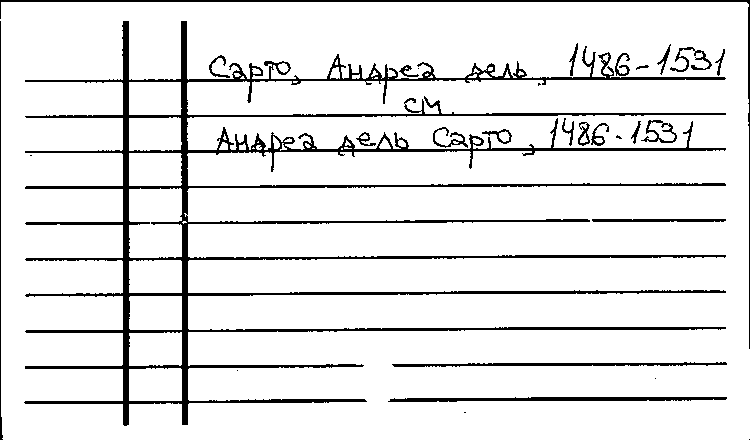 Сарто, Андреа дель, 1486-1531
см.
Андреа дель Сарто, 1486-1531